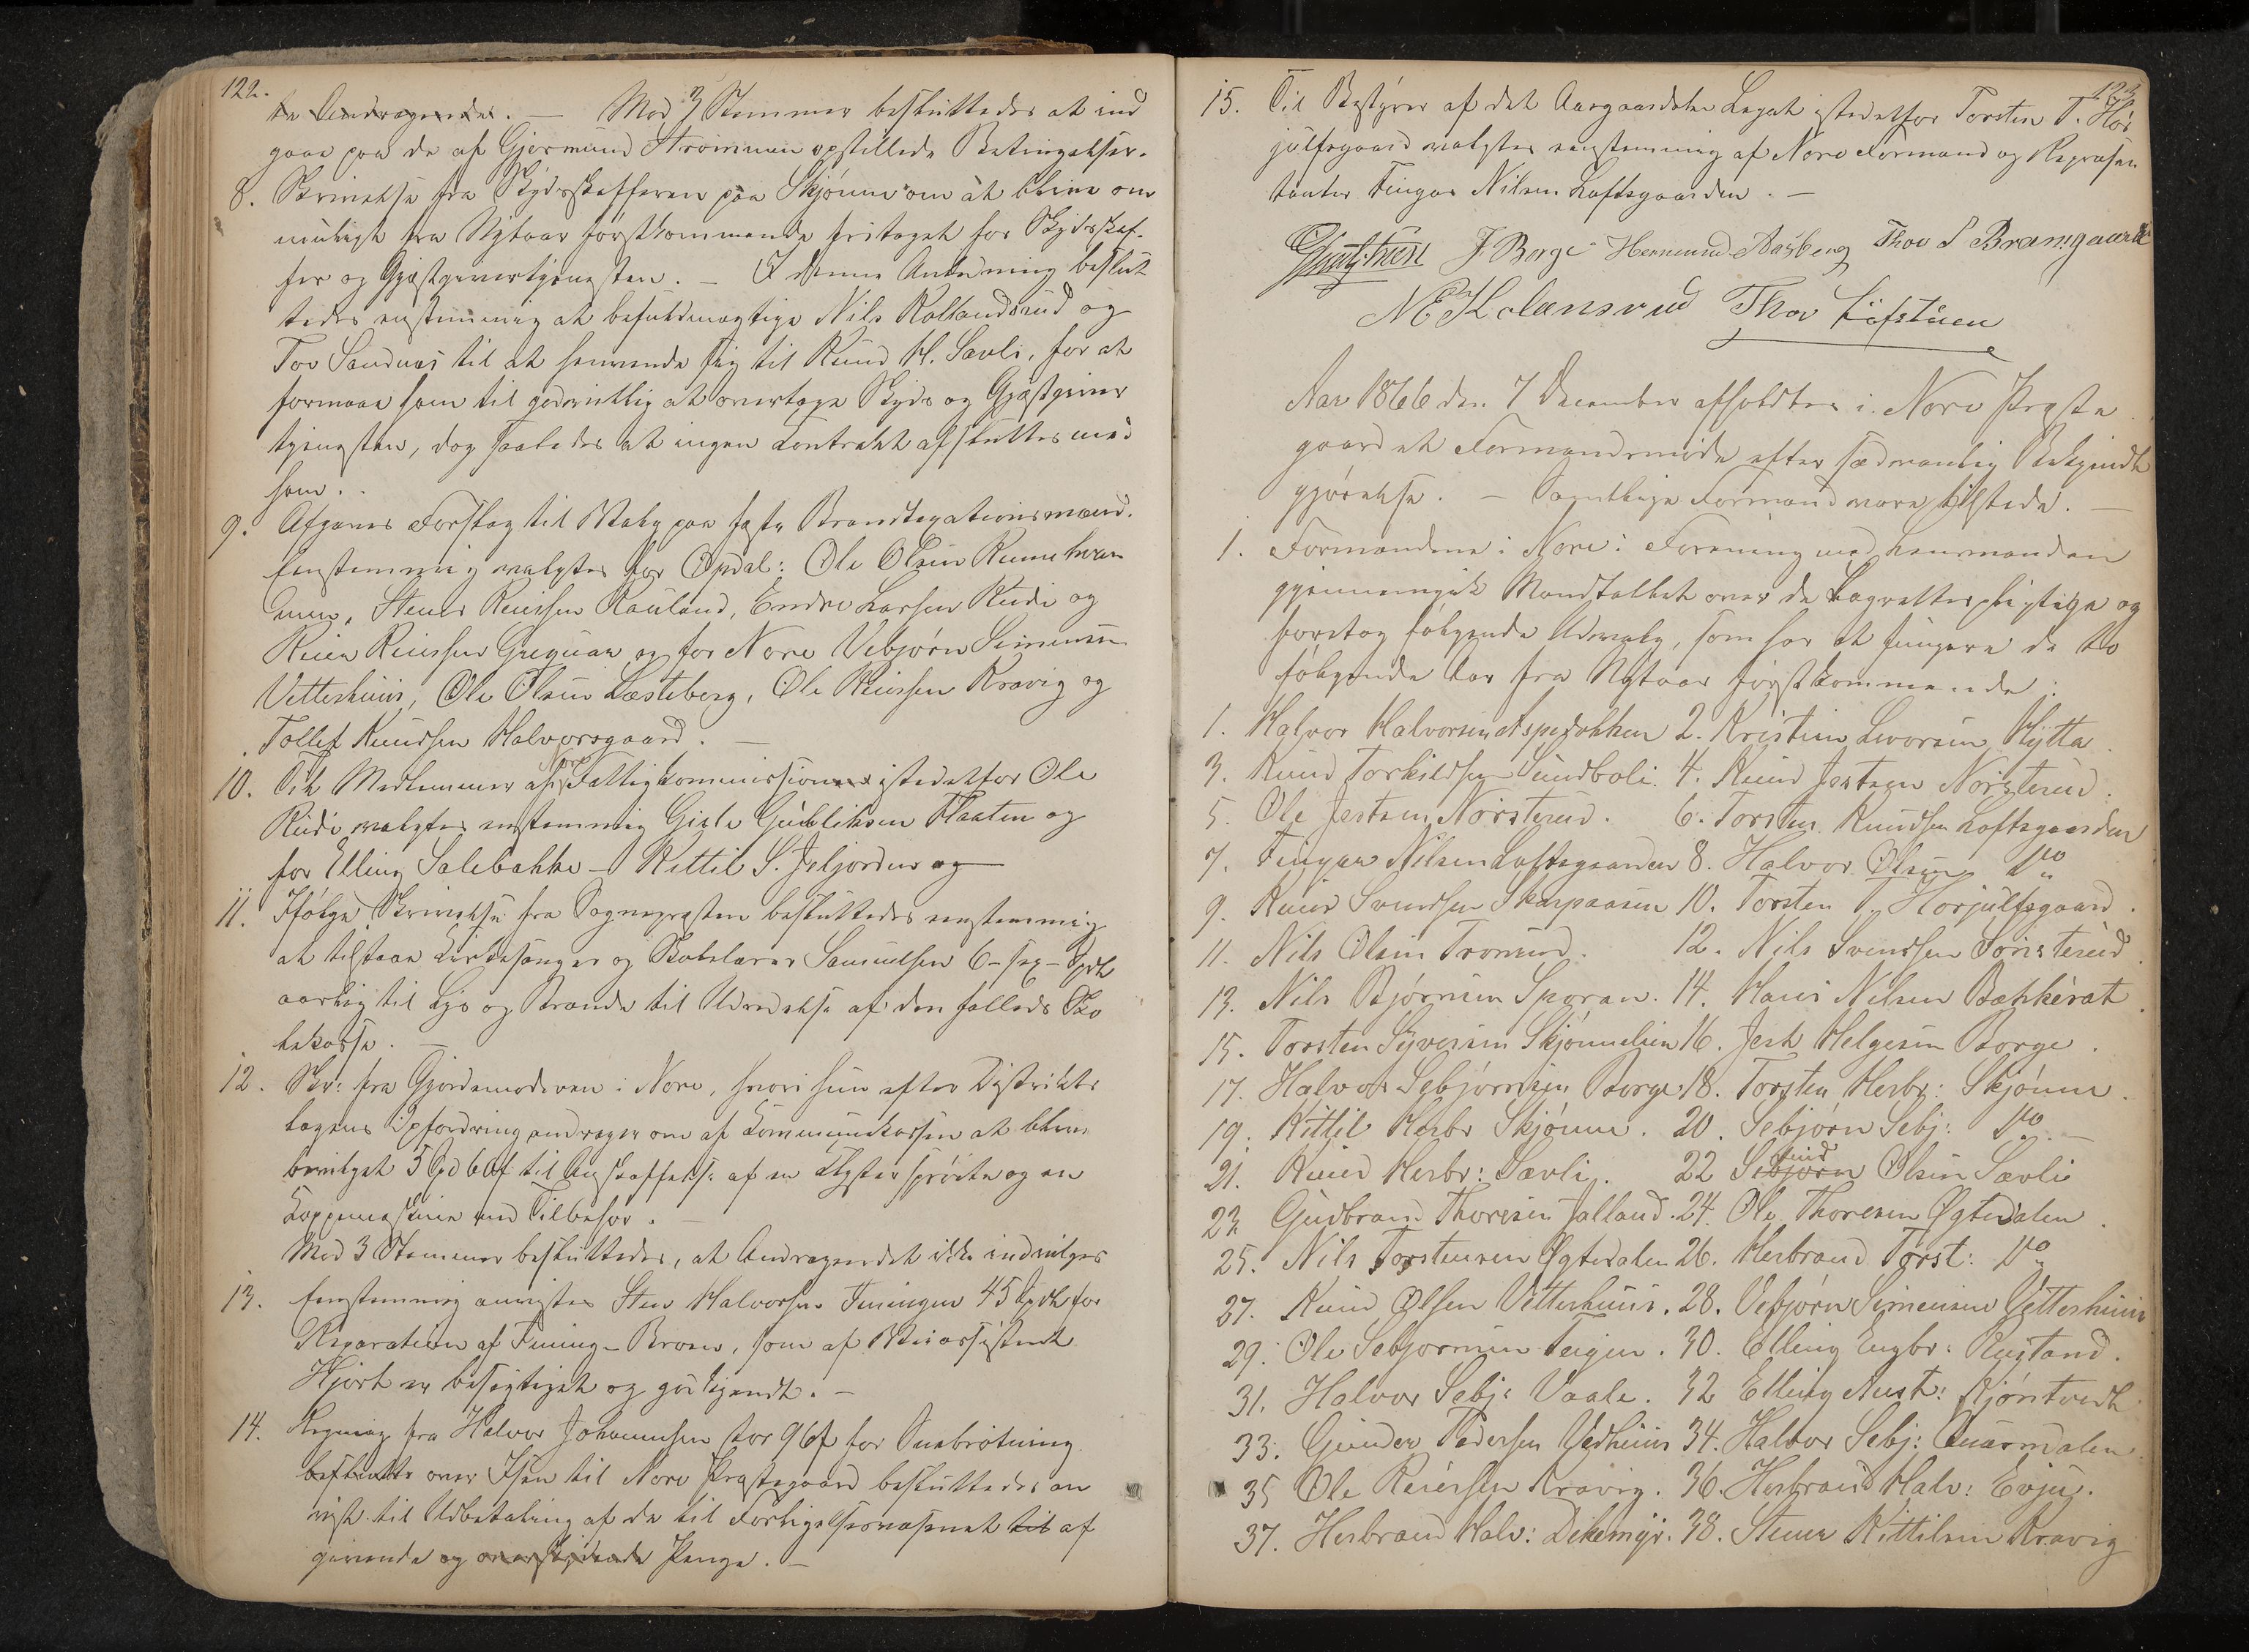 122.
te Andragende. — Med 3 Stemmer besluttedes at ind
gaae paa de af Gjermund Strømmen opstillede Betingelser.
8. Skrivelse fra Skydsskafferen paa Skjønne om at blive om
muligt fra Nytaar førstkommende fritaget for Skydsskaf-
fer og Gjæstgivertjenesten. — I denne Anledning beslut
tedes enstemmig at befuldmægtige Nils Rollandsrud og
Tov Sandnæs til at henvende sig til Knud H. Sævli, for at
formaae ham til godvillig at overtage Skyds og Gjæstgiver
tjenesten, dog saaledes at ingen Kontrakt afsluttes med
ham.
9. Afgaves Forslag til Valg paa faste Brandtaxationsmænd.
Enstemmig valgtes for Opdal: Ole Olsen
Stener Reiersen Rauland, Endre Larsen Rudi og
Reier Reiersen og for Nore Vebjørn Simensen
Vetterhuus, Ole Olsen Læsteberg, Ole Reiersen Kravig og
Tollef Knudsen Halvorsgaard. —
10. Til Medlemmer af Nore Fattigkommission istedetfor Ole
Rudi valgtes enstemmig Gisle Gulliksen Flaaten og
for Elling Salebakke — Kittil S. Jskjorden og —
11. Ifølge Skrivelse fra Sognepresten besluttedes enstemmig
at tilstaae Kirkesanger og Skolelærer Samuelsen 6 - sex - Spdlr
aarlig til Lys og Brænde til Udredelse af den fælleds Sko
lekasse. —
12. Skr: fra Gjordemoderen i Nore, hvori hun efter Distrikts
lægens Opfordring andrager om af Kommunekassen at blive
bevilget 5 Spd 60 f til Anskaffelse af en Klystersprøite og en
Koppemaskine med Tilbehør. —
Med 3 Stemmer besluttedes, at Andragendet ikke indvilges
13. Enstemmig anvistes Sten Halvorsen Funingen 45 Spdlr for
Reparation af Funing-Broen, som af Veiassistent
Hjort er besigtiget og godkjendt. —
14. Regning fra Halvor Johannesen stor 96 f for Snebrøtning
besluttes over Isen til Nore Prestegaard besluttedes an
vist til Udbetaling af de til Forligelsesvæsenet til af
givende og overskydende Penge. —
123
15. Til Bestyrer af det Aasgaardske Legat istedetfor Torsten T. Hør
julfsgaard valgtes enstemmig af Nore Formænd og Repræsen
tanter Fingar Nilsen Loftsgaarden. —
J. Borge Hermund Aasberg Thov S Bramsgaard
N E Kolansrud Thov Løfstuen
Aar 1866 den 7 December afholdtes i Nore Preste
gaard et Formandsmøde efter sædvanlig Bekjendt
gjørelse. — Samtlige Formænd vare tilstede. —
1. Formændene i Nore i Forening med Lensmanden
gjennemgik Mandtallet over de Lagrettespligtige og
foretog følgende Udvalg, som har at fungere de to
følgende Aar fra Nytaar førstkommende:
1. Halvor Halvorsen Aspesokken 2. Kristen Levorsen Hytta.
3. Knud Torkildsen Sundboli. 4. Knud Jestsen Norsterud.
5. Ole Jestsen Norsterud. 6. Torsten Knudsen Loftsgaarden
7. Fingar Nilsen Loftsgaarden 8. Halvor Olsen Do
9. Knud Svendsen Skarpaasen 10. Torsten T. Horjulfsgaard.
11. Nils Olsen Tronrud. 12. Nils Svendsen Sørsterud.
13. Nils Bjørnsen Sporan. 14. Hans Nilsen Bækkerat.
15. Torsten Syversen Skjønnelien 16. Jest Helgesen Borge.
17. Halvor Sebjørnsen Borge 18. Torsten Herbr: Skjønne.
19. Kittil Herbr Skjønne. 20. Sebjørn Sebj: Do —
21. Knud Herbr: Sævli. 22 Sebjørn Olsen Sævli
23 Gudbrand Thoresen Jalland. 24. Ole Thoresen Øgtedalen.
25. Nils Torstensen Øgtedalen 26. Herbrand Torst: Do
27. Knud Olsen Vetterhuus. 28. Vebjørn Simensen Vetterhuus
29. Ole Sebjørnsen Teigen. 30. Elling Engbr: Rustand.
31. Halvor Sebj: Vaale. 32 Elling Aust: Kjøntvedt
33. Gunder Pedersen Vedhuus 34. Halvor Sebj: Quarmdalen.
35 Ole Reiersen Kravig. 36. Herbrand Halv: Evju.
37. Herbrand Halv: Dekemyr. 38. Stener Kittilsen Kravig